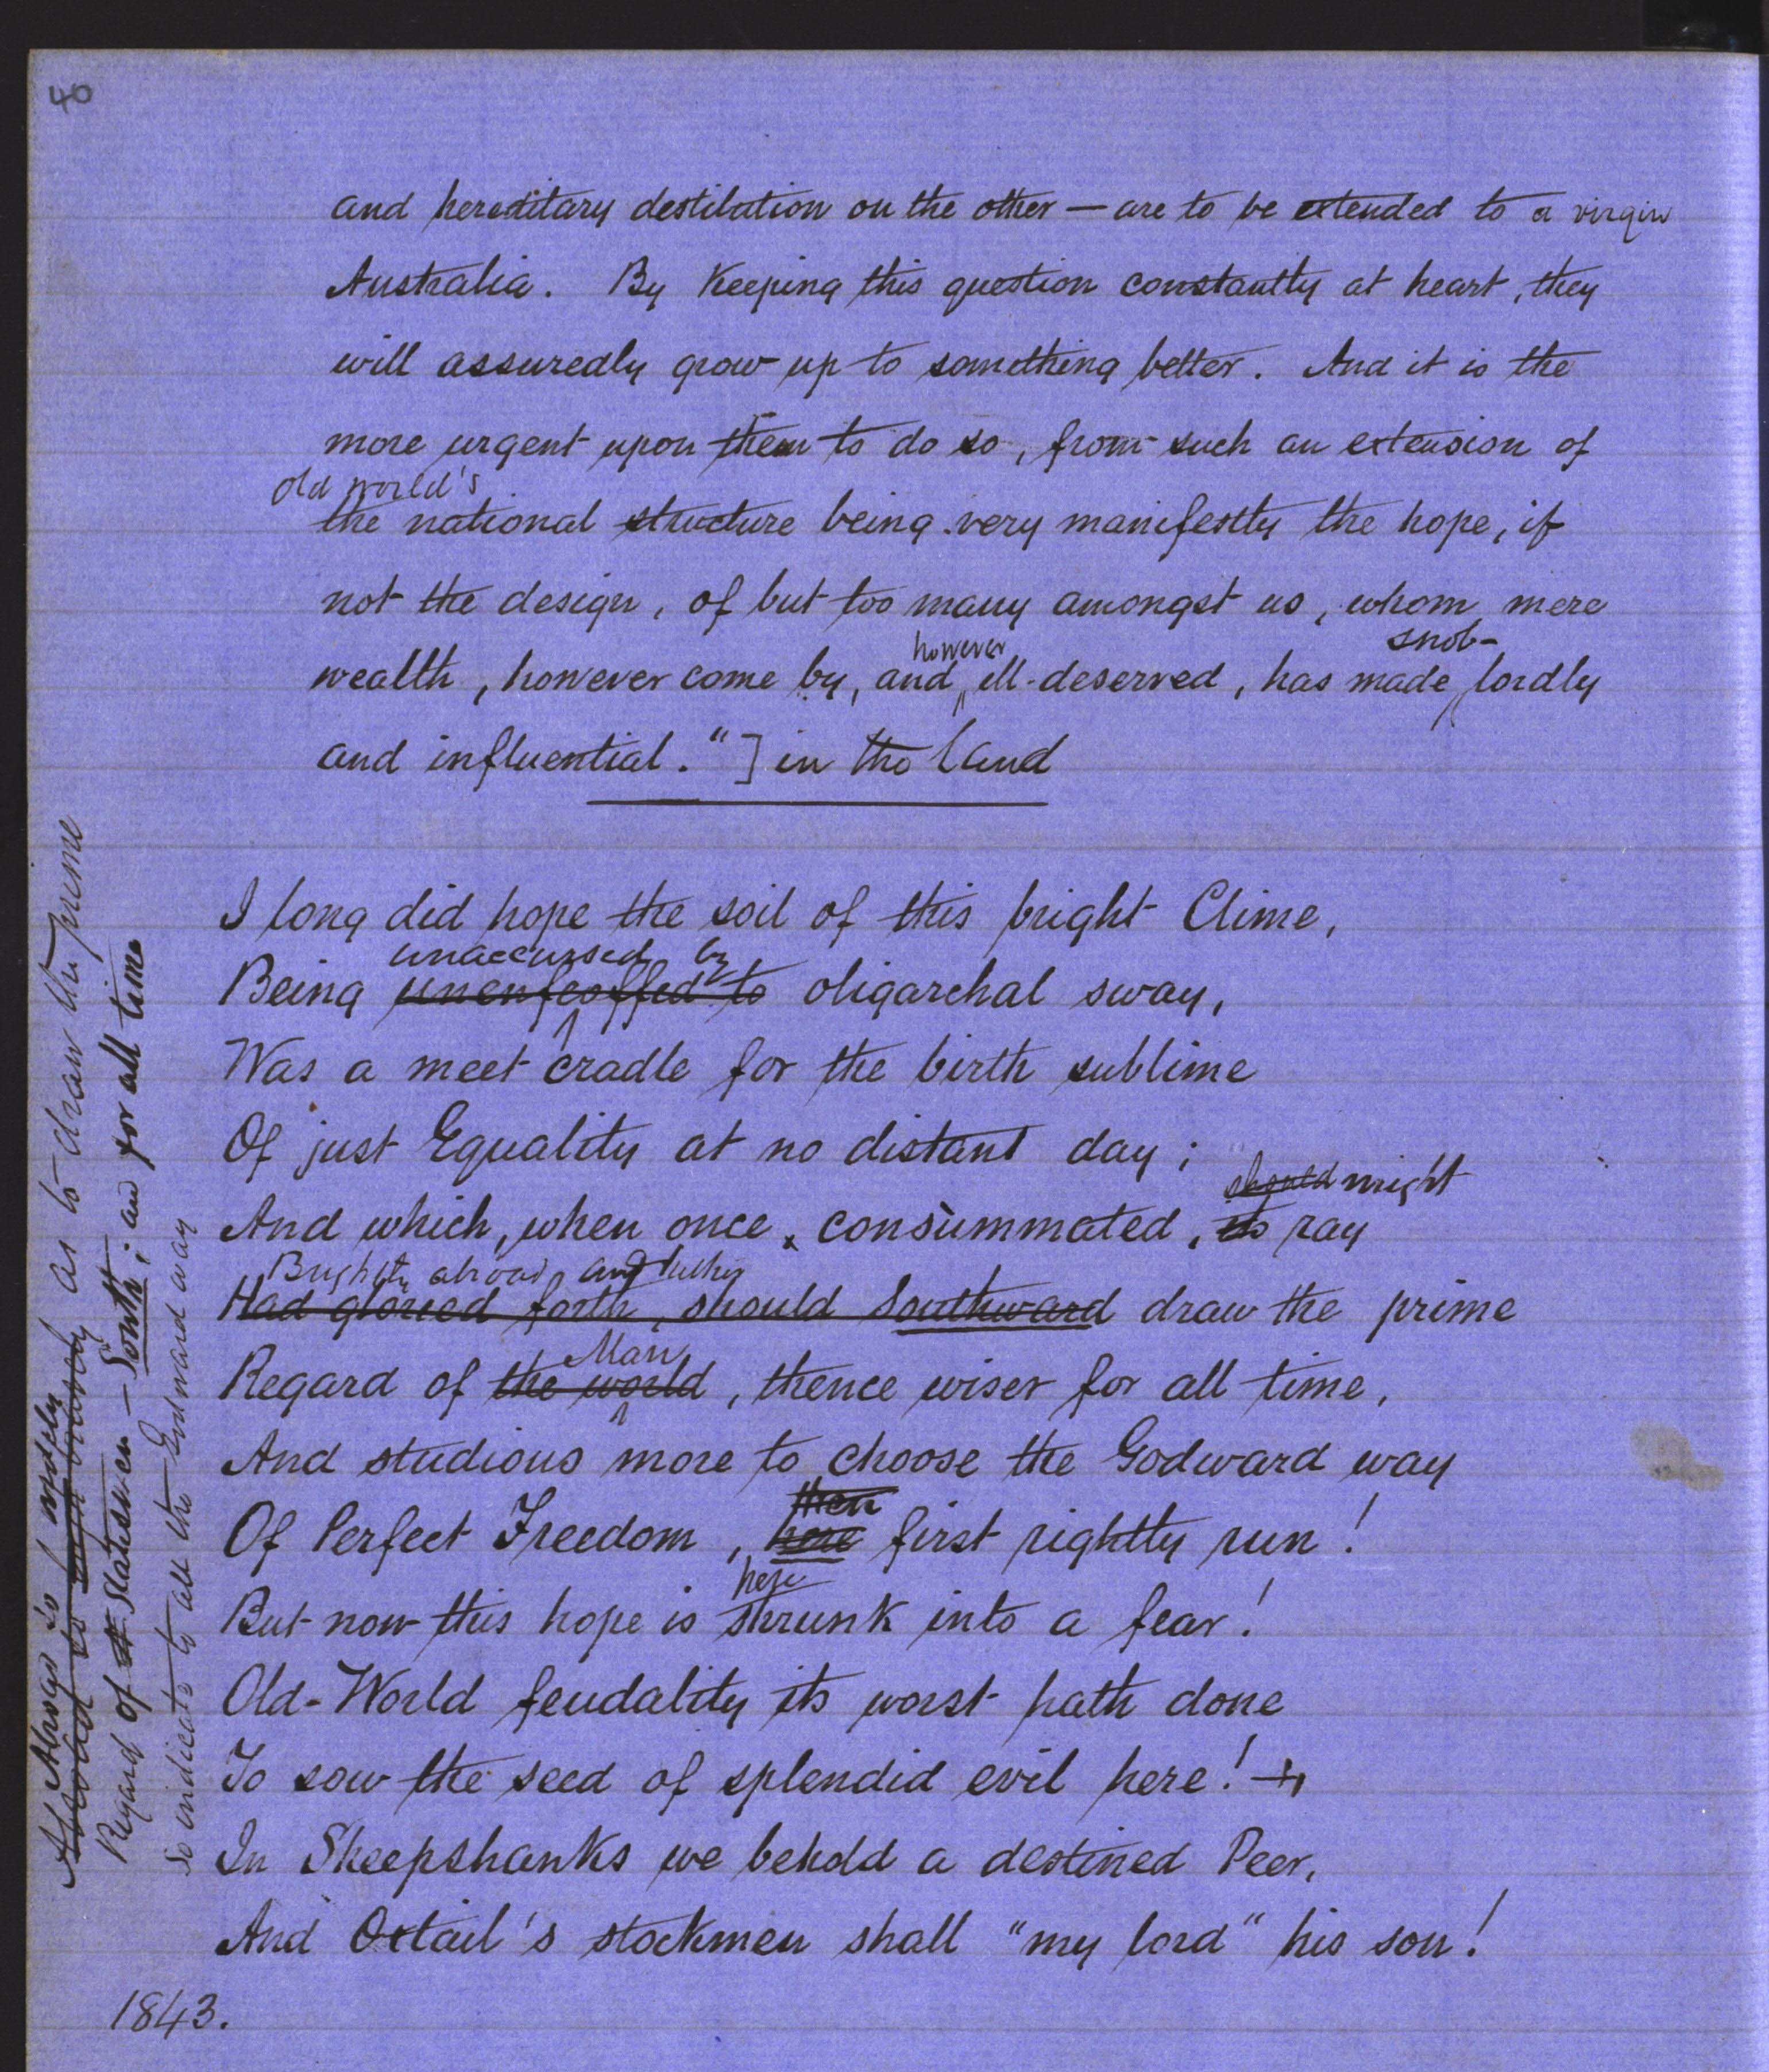 40
and hereditary destitution on the other — are to be extended to a virgin
Australia. By keeping this question constantly at heart, they
will assuredly grow up to something better. And it is the
more urgent upon them to do so, from such an extension of
old world's
the national structure being very manifestly the hope, if
not the design, of but too many amongst us, whom mere
however snob-
wealth, however come by, and ill-deserved, has made lordly
and influential."] in the land
I long did hope the soil of this bright Clime,
unaccursed by
Being unenfeoffed to oligarchal sway,
Was a meet cradle for the birth sublime
Of just Equality at no distant day;
should might
And which, when once consùmmated, its ray
Brightly abroad, and hither
Had gloried forth, should Southward draw the prime
Man
Regard of the world, thence wiser for all time,
And studious more to choose the Godward way
then
Of Perfect Freedom, here first rightly run!
here
But now this hope is shrunk into a fear!
Old-World feudality its worst hath done
To sow the seed of splendid evil here! —
In Sheepshanks we behold a destined Peer,
And Oxtail's stockmen shall "my lord" his son!
1843.
Abroad so widely
Abroad so as to draw the prime
Regard of Statesmen — South; and for all time
So indicate to all the Godward way